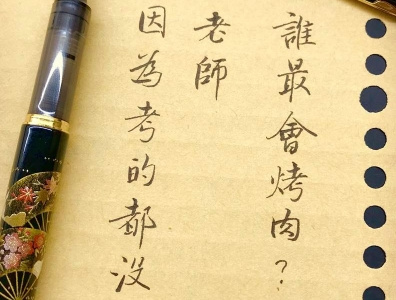 誰最會烤肉？
老師
因為考的都沒